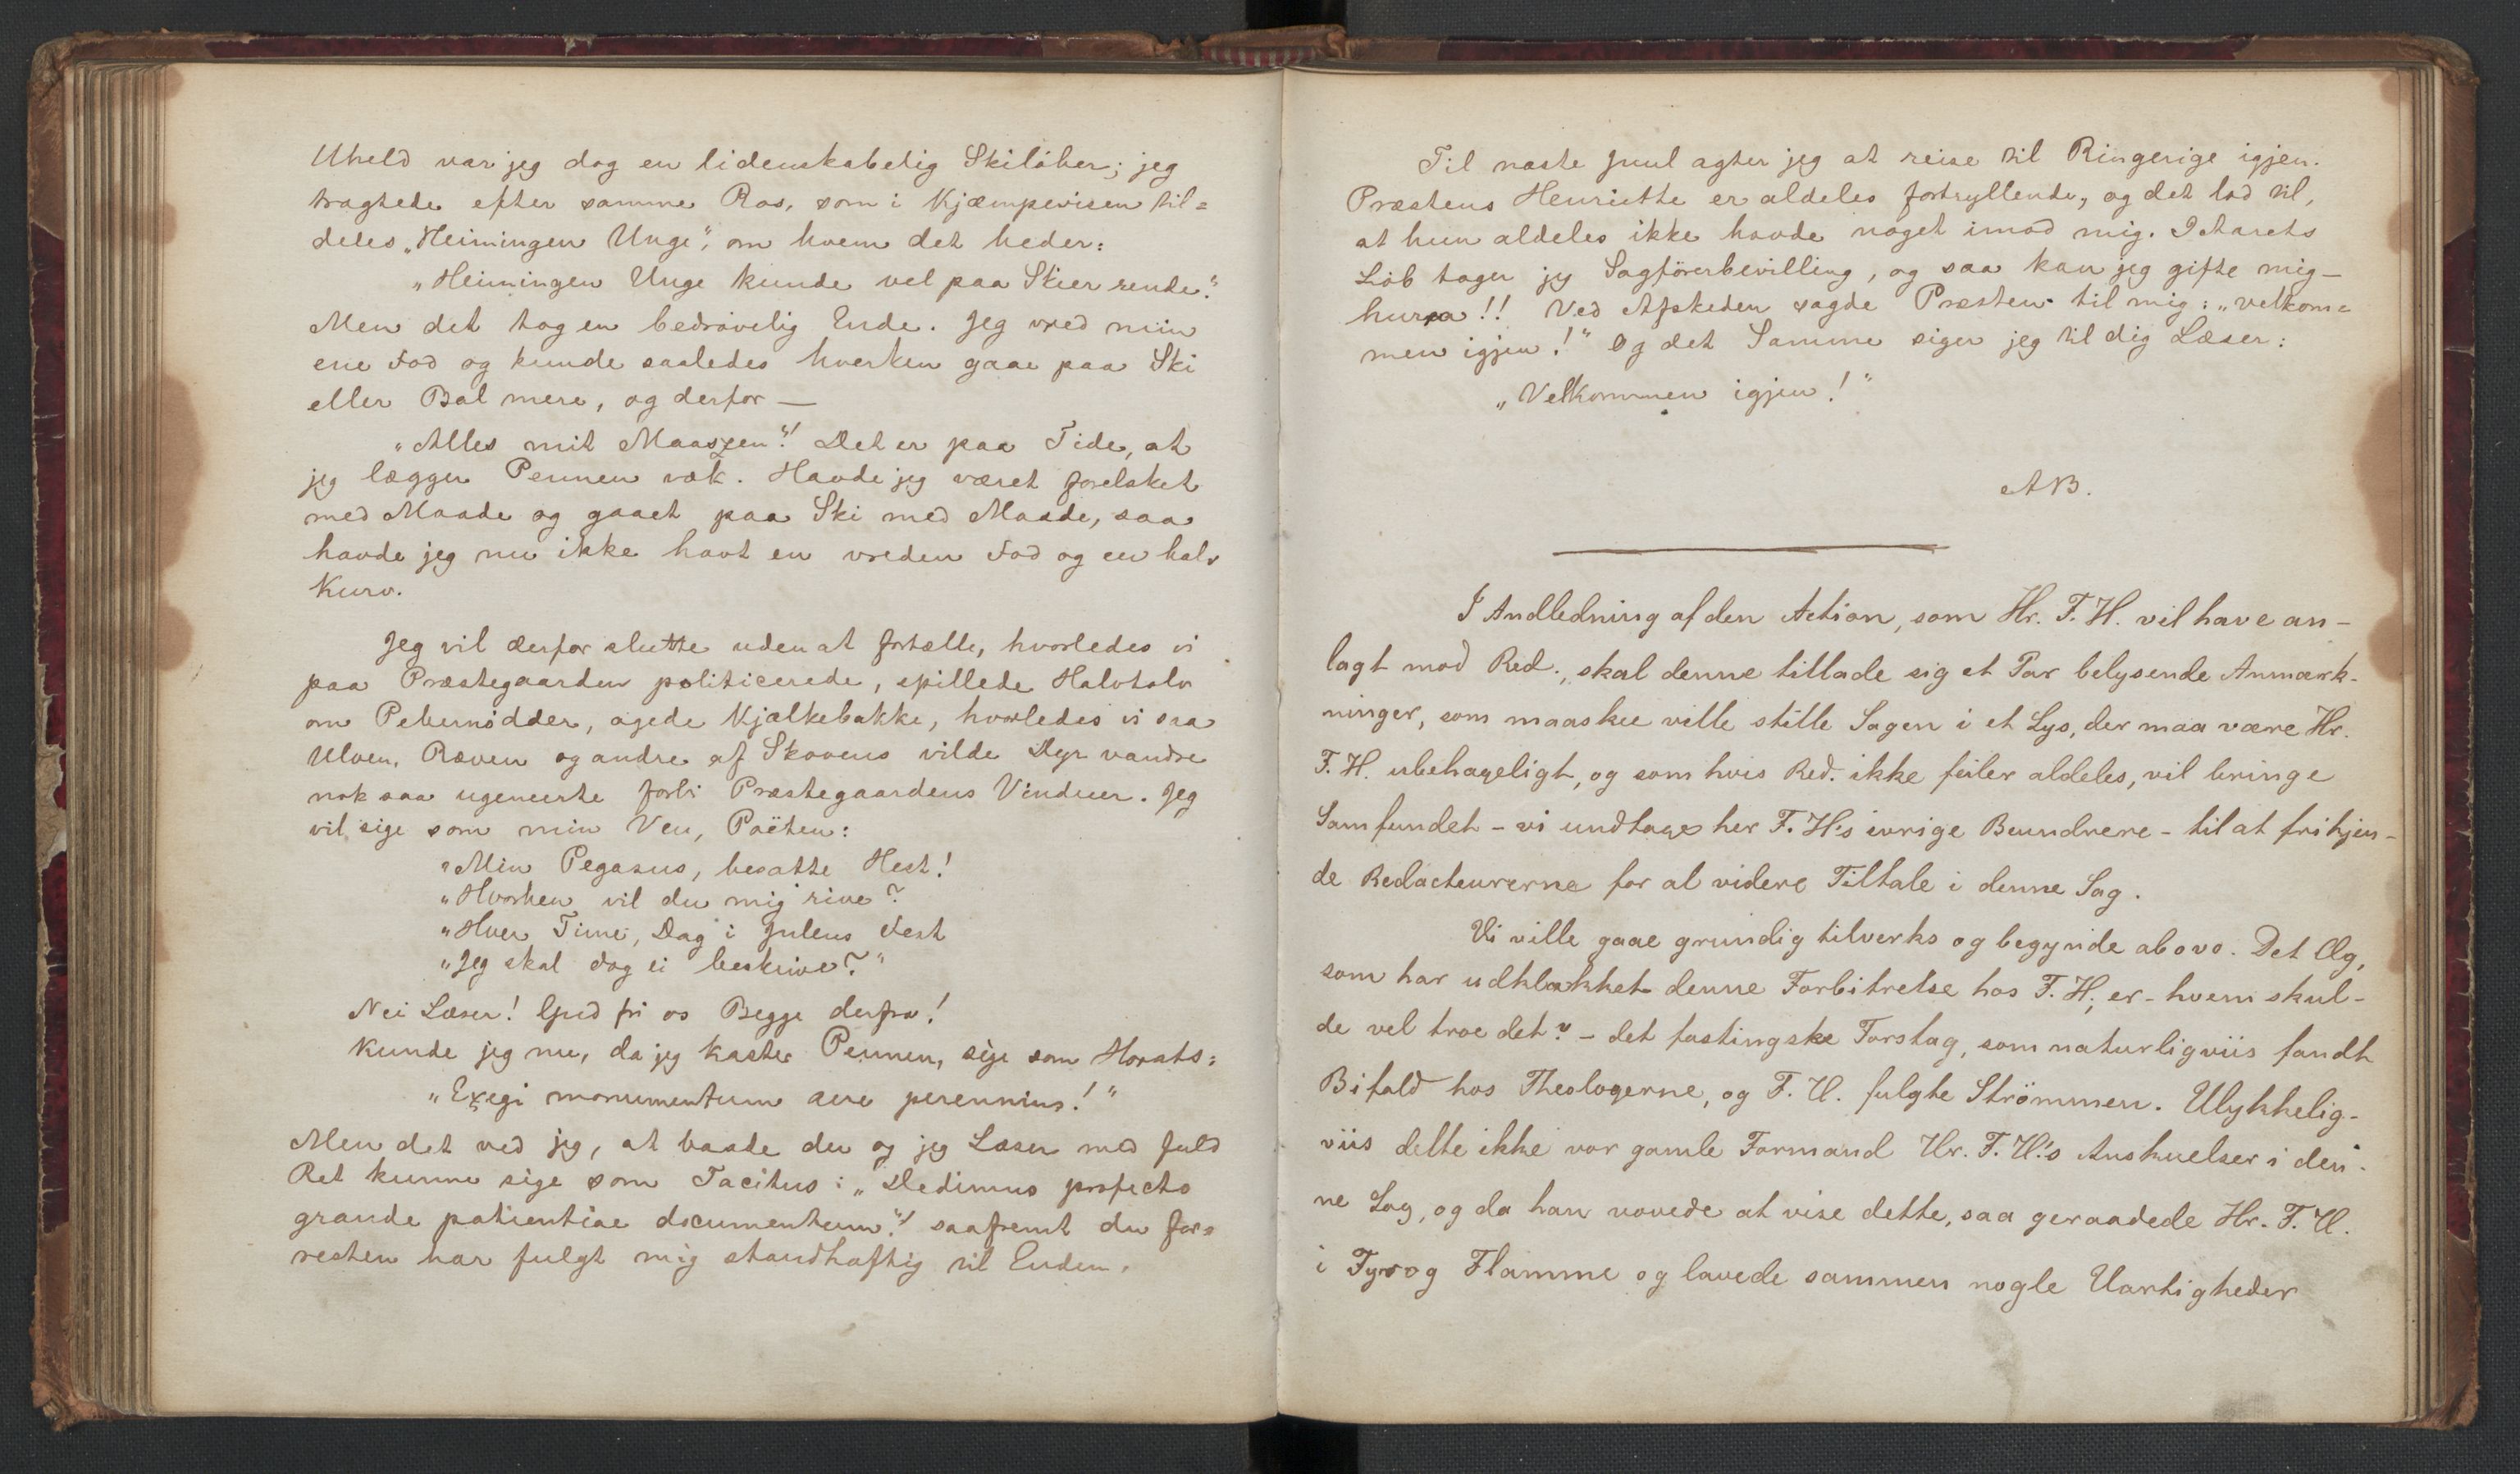 Uheld var jeg dog en lidenskabelig Skilöber; jeg
tragtede efter samme Ros, som i Kjæmpevisen til=
deles „Heiningen Unge", om hvem det heder:
„Heiningen Unge kunde vel paa Skier rende."
Men det tog en bedrøvelig Ende. Jeg vred min
ene Fod og kunde saaledes hverken gaae paa Ski
eller Bal mere, og derfor —
„Alles mit Maaszen"! Det er paa Tide, at
jeg lægger Pennen væk. Havde jeg været forelsket
med Maade og gaaet paa Ski med Maade, saa
havde jeg nu ikke havt en vreden Fod og en halv
Kurv.
Jeg vil derfor slutte uden at fortælle, hvorledes vi
paa Præstegaarden politicerede, spillede Halvtolv
om Pebernödder, agede Kjælkebakke, hvorledes vi saa
Ulven, Ræven og andre af Skovens vilde Dyr vandre
nok saa ugeneerte forbi Præstegaardens Vinduer. Jeg
vil sige som min Ven, Poëten:
„Min Pegasus, besatte Hest!
„Hvorhen vil du mig rive?
„Hver Time, Dag i Julens Fest
„Jeg skal dog ei beskrive?"
Nei Læser! Gud fri os Begge derfra!
Kunde jeg nu, da jeg kaster Pennen, sige som Horats:
„Exegi monumentum aere perennius!"
Men det ved jeg, at baade du og jeg Læser med fuld
Ret kunne sige som Tacitus: „Dedimus profecto
grande patientiae documentum"! saafremt du for=
resten har fulgt mig standhaftig til Enden.
Til næste Juul agter jeg at reise til Ringerige igjen.
Præstens Henriette er aldeles fortryllende, og det lod til,
at hun aldeles ikke havde noget imod mig. I Aarets
Löb tager jeg Sagförerbevilling, og saa kan jeg gifte mig —
hurra!! Ved Afskeden sagde Præsten til mig: „velkom=
men igjen!" Og det Samme siger jeg til dig Læser:
„Velkommen igjen!"
AB.
I Andledning af den Action, som Hr. F. H. vil have an-
lagt mod Red., skal denne tillade sig et Par belysende Anmærk-
ninger, som maaskee ville stille Sagen i et Lys, der maa være Hr.
F. H. ubehageligt, og som hvis Red. ikke feiler aldeles, vil bringe
Samfundet - vi undtage her F. H's ivrige Beundrere - til at frikjen-
de Redacteurerne for al videre Tiltale i denne Sag.
Vi ville gaae grundig tilverks og begynde ab ovo. Det Æg,
som har udklækket denne Forbitrelse hos F. H., er - hvem skul-
de vel troe det? - det fastingske Forslag, som naturligviis fandt
Bifald hos Theologerne, og F. H. fulgte Strömmen. Ulykkelig-
viis delte ikke vor gamle Formand Hr. F. H.'s Anskuelser i den-
ne Sag, og da han vovede at vise dette, saa geraadede Hr. F. H.
i Fyr og Flamme og lavede sammen nogle Uartigheder